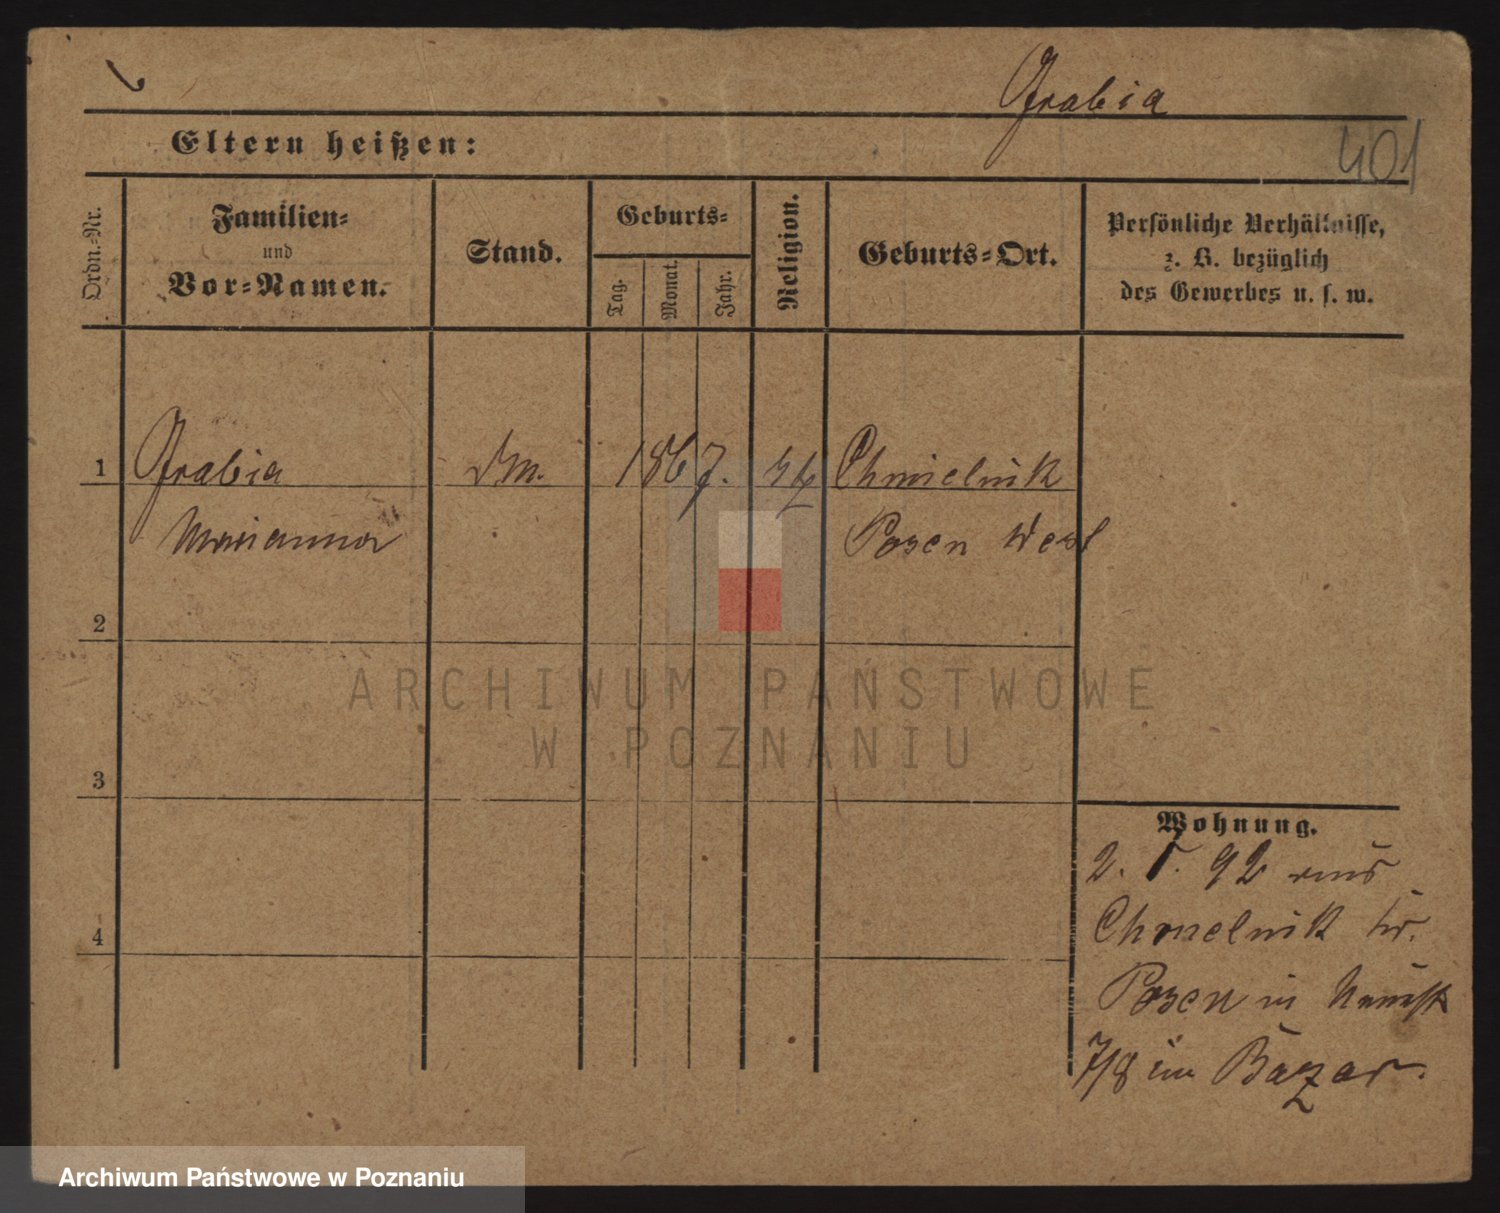 Grabia
401
Eltern heißen:
Ordn.-Nr.
Familien-
und
Vor-Namen.
Stand.
Geburts-
Tag.
Monat.
Jahr.
Religion.
Geburts-Ort.
Persönliche Verhältnisse,
z. B. bezüglich
des Gewerbes u. s. w.
1 Grabia 1867. Chmielnik
Marianna Posen West
2
3
4
Wohnung.
2. 5. 92 aus
Chmielnik Kr.
Posen in
7/8 im Bazar.
ARCHIWUM PAŃSTWOWE
W POZNANIU
Archiwum Państwowe w Poznaniu